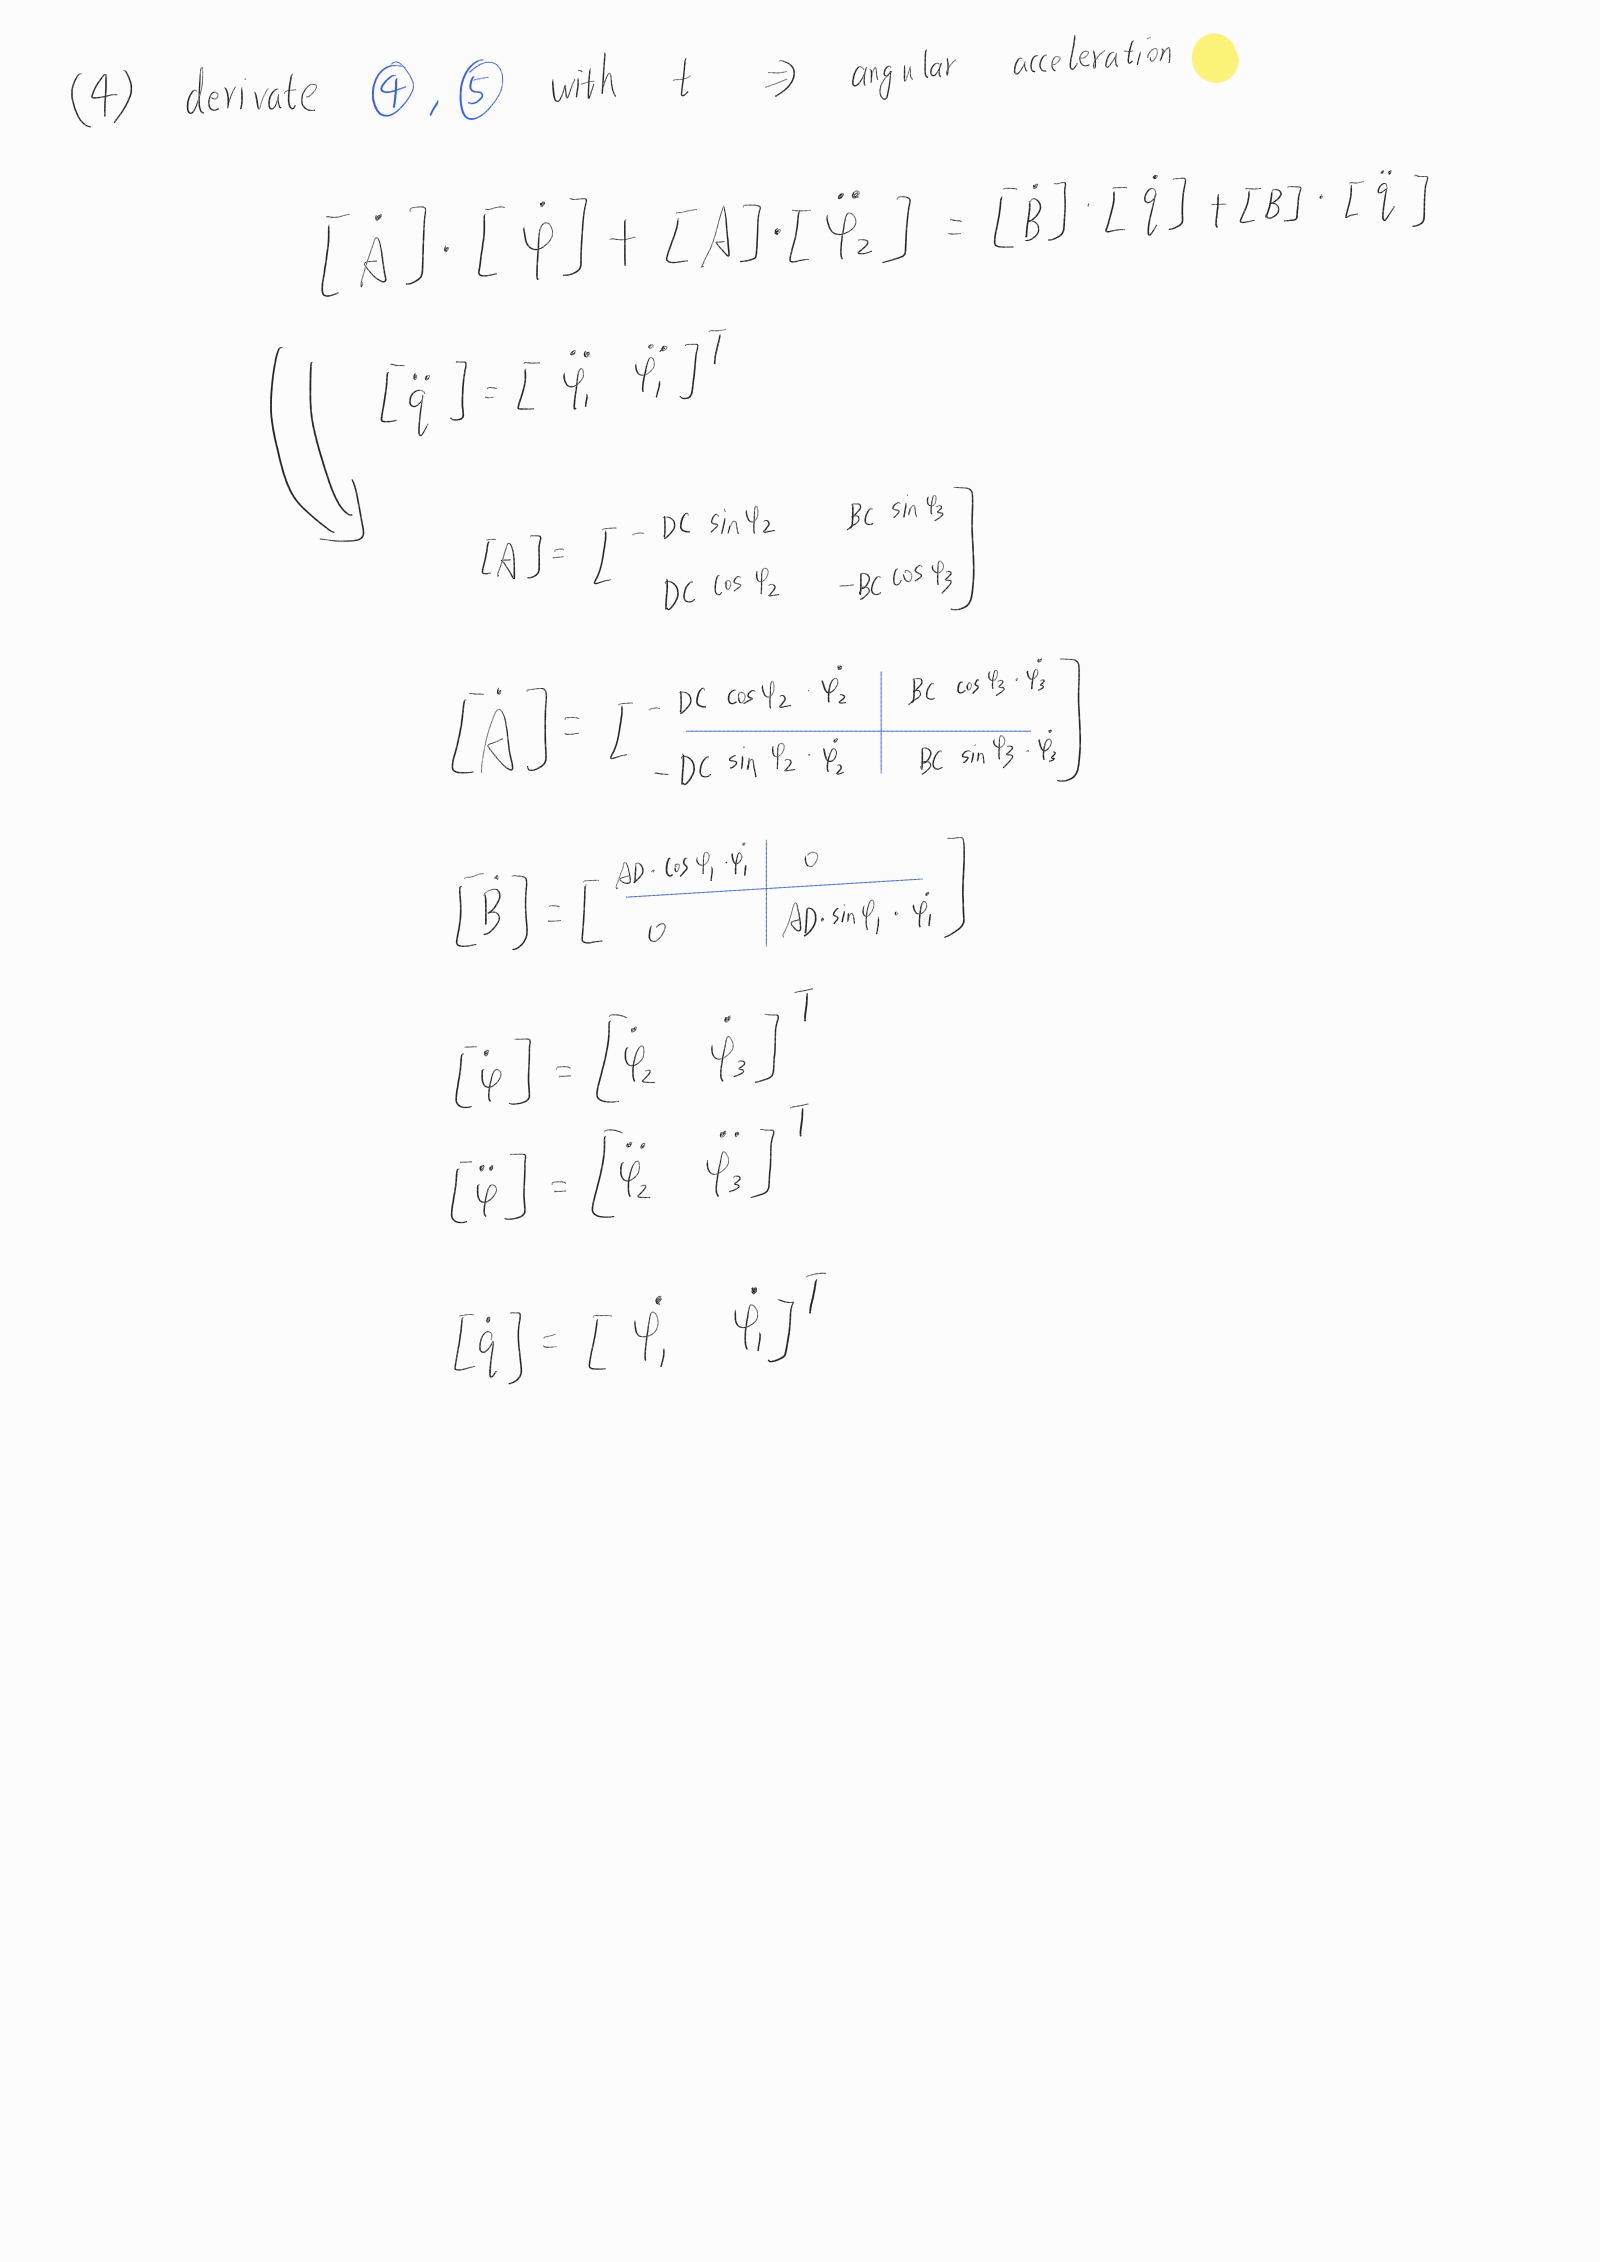 (4) derivate ④, ⑤ with t ⇒ angular acceleration
[Ȧ]·[φ̇] + [A]·[φ̈₂] = [Ḃ]·[q̇] + [B]·[q̈]
[q̈] = [φ̈₁ φ̈₁]ᵀ
[A] = [ -DC sinφ₂ BC sinφ₃
DC cosφ₂ -BC cosφ₃ ]
[Ȧ] = [ -DC cosφ₂·φ̇₂ BC cosφ₃·φ̇₃
-DC sinφ₂·φ̇₂ BC sinφ₃·φ̇₃ ]
[Ḃ] = [ AD·cosφ₁·φ̇₁ 0
0 AD·sinφ₁·φ̇₁ ]
[φ̇] = [φ̇₂ φ̇₃]ᵀ
[φ̈] = [φ̈₂ φ̈₃]ᵀ
[q̇] = [φ̇₁ φ̇₁]ᵀ